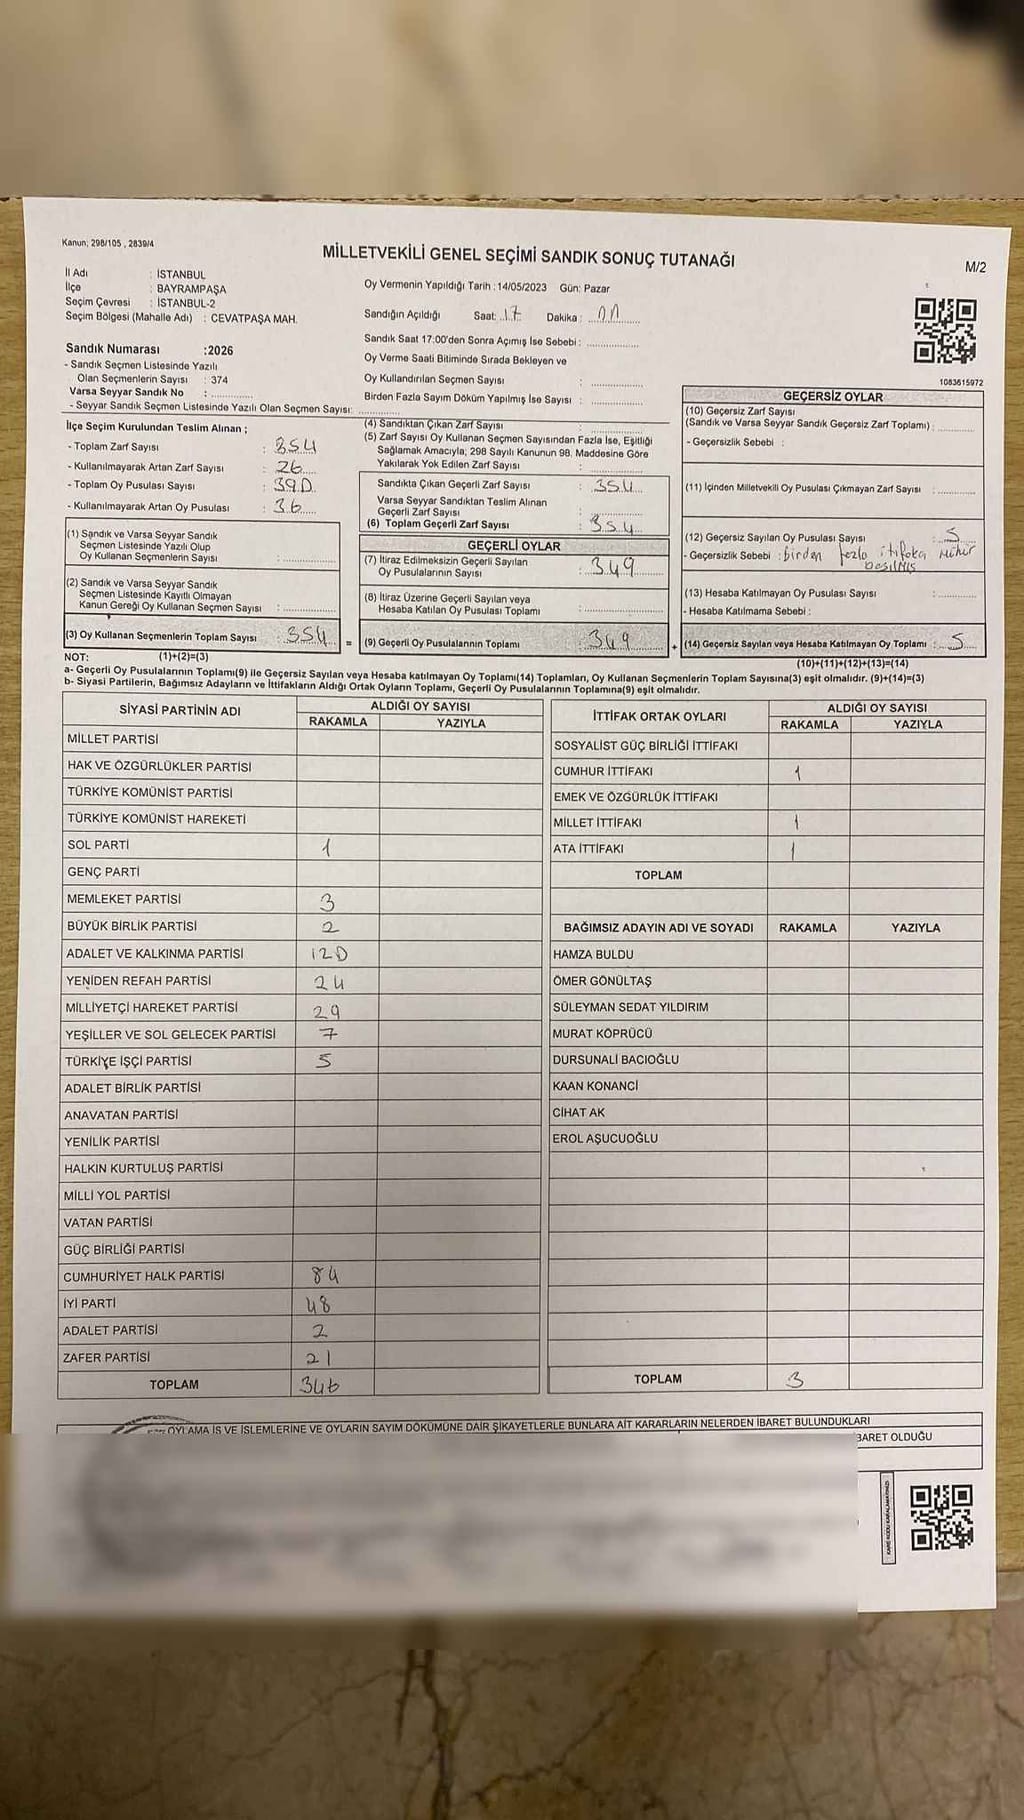 Kanun; 298/105 , 2839/4
MİLLETVEKİLİ GENEL SEÇİMİ SANDIK SONUÇ TUTANAĞI
M/2
İl Adı : İSTANBUL
İlçe : BAYRAMPAŞA
Seçim Çevresi : İSTANBUL-2
Seçim Bölgesi (Mahalle Adı) : CEVATPAŞA MAH.
Sandık Numarası :2026
- Sandık Seçmen Listesinde Yazılı
Olan Seçmenlerin Sayısı : 374
Varsa Seyyar Sandık No :
- Seyyar Sandık Seçmen Listesinde Yazılı Olan Seçmen Sayısı:
Oy Vermenin Yapıldığı Tarih :14/05/2023 Gün: Pazar
Sandığın Açıldığı Saat: 17 Dakika : 00
Sandık Saat 17:00'den Sonra Açımış İse Sebebi :
Oy Verme Saati Bitiminde Sırada Bekleyen ve
Oy Kullandırılan Seçmen Sayısı :
Birden Fazla Sayım Döküm Yapılmış İse Sayısı :
1083615972
İlçe Seçim Kurulundan Teslim Alınan ;
- Toplam Zarf Sayısı :
- Kullanılmayarak Artan Zarf Sayısı : 26
- Toplam Oy Pusulası Sayısı : 390
- Kullanılmayarak Artan Oy Pusulası : 36
(1) Sandık ve Varsa Seyyar Sandık
Seçmen Listesinde Yazılı Olup
Oy Kullanan Seçmenlerin Sayısı :
(2) Sandık ve Varsa Seyyar Sandık
Seçmen Listesinde Kayıtlı Olmayan
Kanun Gereği Oy Kullanan Seçmen Sayısı :
(3) Oy Kullanan Seçmenlerin Toplam Sayısı : 354 =
(4) Sandıktan Çıkan Zarf Sayısı :
(5) Zarf Sayısı Oy Kullanan Seçmen Sayısından Fazla İse, Eşitliği
Sağlamak Amacıyla; 298 Sayılı Kanunun 98. Maddesine Göre
Yakılarak Yok Edilen Zarf Sayısı :
Sandıkta Çıkan Geçerli Zarf Sayısı : 354
Varsa Seyyar Sandıktan Teslim Alınan
Geçerli Zarf Sayısı :
(6) Toplam Geçerli Zarf Sayısı : 354
GEÇERLİ OYLAR
(7) İtiraz Edilmeksizin Geçerli Sayılan
Oy Pusulalarının Sayısı : 349
(8) İtiraz Üzerine Geçerli Sayılan veya
Hesaba Katılan Oy Pusulası Toplamı :
(9) Geçerli Oy Pusulalarının Toplamı : 349 +
GEÇERSİZ OYLAR
(10) Geçersiz Zarf Sayısı
(Sandık ve Varsa Seyyar Sandık Geçersiz Zarf Toplamı) :
- Geçersizlik Sebebi :
(11) İçinden Milletvekili Oy Pusulası Çıkmayan Zarf Sayısı :
(12) Geçersiz Sayılan Oy Pusulası Sayısı : 5
- Geçersizlik Sebebi : birden fazla itifaka mühür
basılmış
(13) Hesaba Katılmayan Oy Pusulası Sayısı :
- Hesaba Katılmama Sebebi :
(14) Geçersiz Sayılan veya Hesaba Katılmayan Oy Toplamı : 5
NOT: (1)+(2)=(3)
(10)+(11)+(12)+(13)=(14)
a- Geçerli Oy Pusulalarının Toplamı(9) ile Geçersiz Sayılan veya Hesaba Katılmayan Oy Toplamı(14) Toplamları, Oy Kullanan Seçmenlerin Toplam Sayısına(3) eşit olmalıdır. (9)+(14)=(3)
b- Siyasi Partilerin, Bağımsız Adayların ve İttifakların Aldığı Ortak Oyların Toplamı, Geçerli Oy Pusulalarının Toplamına(9) eşit olmalıdır.
SİYASİ PARTİNİN ADI
ALDIĞI OY SAYISI
RAKAMLA YAZIYLA
MİLLET PARTİSİ
HAK VE ÖZGÜRLÜKLER PARTİSİ
TÜRKİYE KOMÜNİST PARTİSİ
TÜRKİYE KOMÜNİST HAREKETİ
SOL PARTİ 1
GENÇ PARTİ
MEMLEKET PARTİSİ 3
BÜYÜK BİRLİK PARTİSİ 2
ADALET VE KALKINMA PARTİSİ 120
YENİDEN REFAH PARTİSİ 24
MİLLİYETÇİ HAREKET PARTİSİ 29
YEŞİLLER VE SOL GELECEK PARTİSİ 7
TÜRKİYE İŞÇİ PARTİSİ 5
ADALET BİRLİK PARTİSİ
ANAVATAN PARTİSİ
YENİLİK PARTİSİ
HALKIN KURTULUŞ PARTİSİ
MİLLİ YOL PARTİSİ
VATAN PARTİSİ
GÜÇ BİRLİĞİ PARTİSİ
CUMHURİYET HALK PARTİSİ 84
İYİ PARTİ 48
ADALET PARTİSİ 2
ZAFER PARTİSİ 21
TOPLAM 346
İTTİFAK ORTAK OYLARI
ALDIĞI OY SAYISI
RAKAMLA YAZIYLA
SOSYALİST GÜÇ BİRLİĞİ İTTİFAKI
CUMHUR İTTİFAKI 1
EMEK VE ÖZGÜRLÜK İTTİFAKI
MİLLET İTTİFAKI 1
ATA İTTİFAKI 1
TOPLAM
BAĞIMSIZ ADAYIN ADI VE SOYADI RAKAMLA YAZIYLA
HAMZA BULDU
ÖMER GÖNÜLTAŞ
SÜLEYMAN SEDAT YILDIRIM
MURAT KÖPRÜCÜ
DURSUNALİ BACIOĞLU
KAAN KONANCİ
CİHAT AK
EROL AŞUCUOĞLU
TOPLAM 3
OYLAMA İŞ VE İŞLEMLERİNE VE OYLARIN SAYIM DÖKÜMÜNE DAİR ŞİKAYETLERLE BUNLARA AİT KARARLARIN NELERDEN İBARET BULUNDUKLARI
BARET OLDUĞU